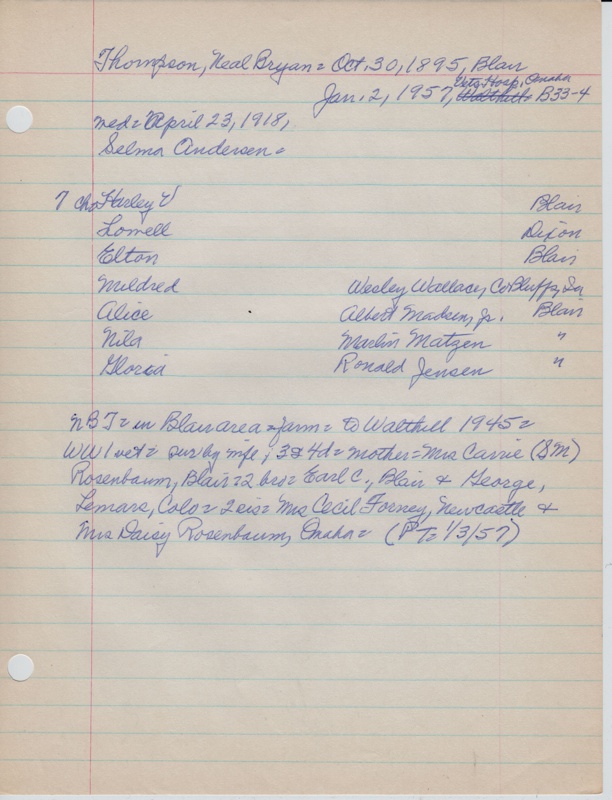 Thompson, Neal Bryan = Oct. 30, 1895, Blair
Vets Hosp, Omaha
Jan. 2, 1957, Walthill = B33-4
med = April 23, 1918,
Selma Andersen =
7 ch = Harley V Blair
Lowell Dixon
Elton Blair
Mildred Wesley Wallace, Co Bluffs, Ia
Alice Albert Madsen, Jr. Blair
Nila Marlin Matzen "
Gloria Ronald Jensen "
NBT = in Blair area = farm = to Walthill 1945 =
WW1 vet = sur by wife, 3s 4d = mother = Mrs Carrie (SM)
Rosenbaum, Blair = 2 bro = Earl C., Blair & George,
Lemars, Colo = 2 sis = Mrs Cecil Forney, Newcastle &
Mrs Daisy Rosenbaum, Omaha = (PT = 1/3/57)